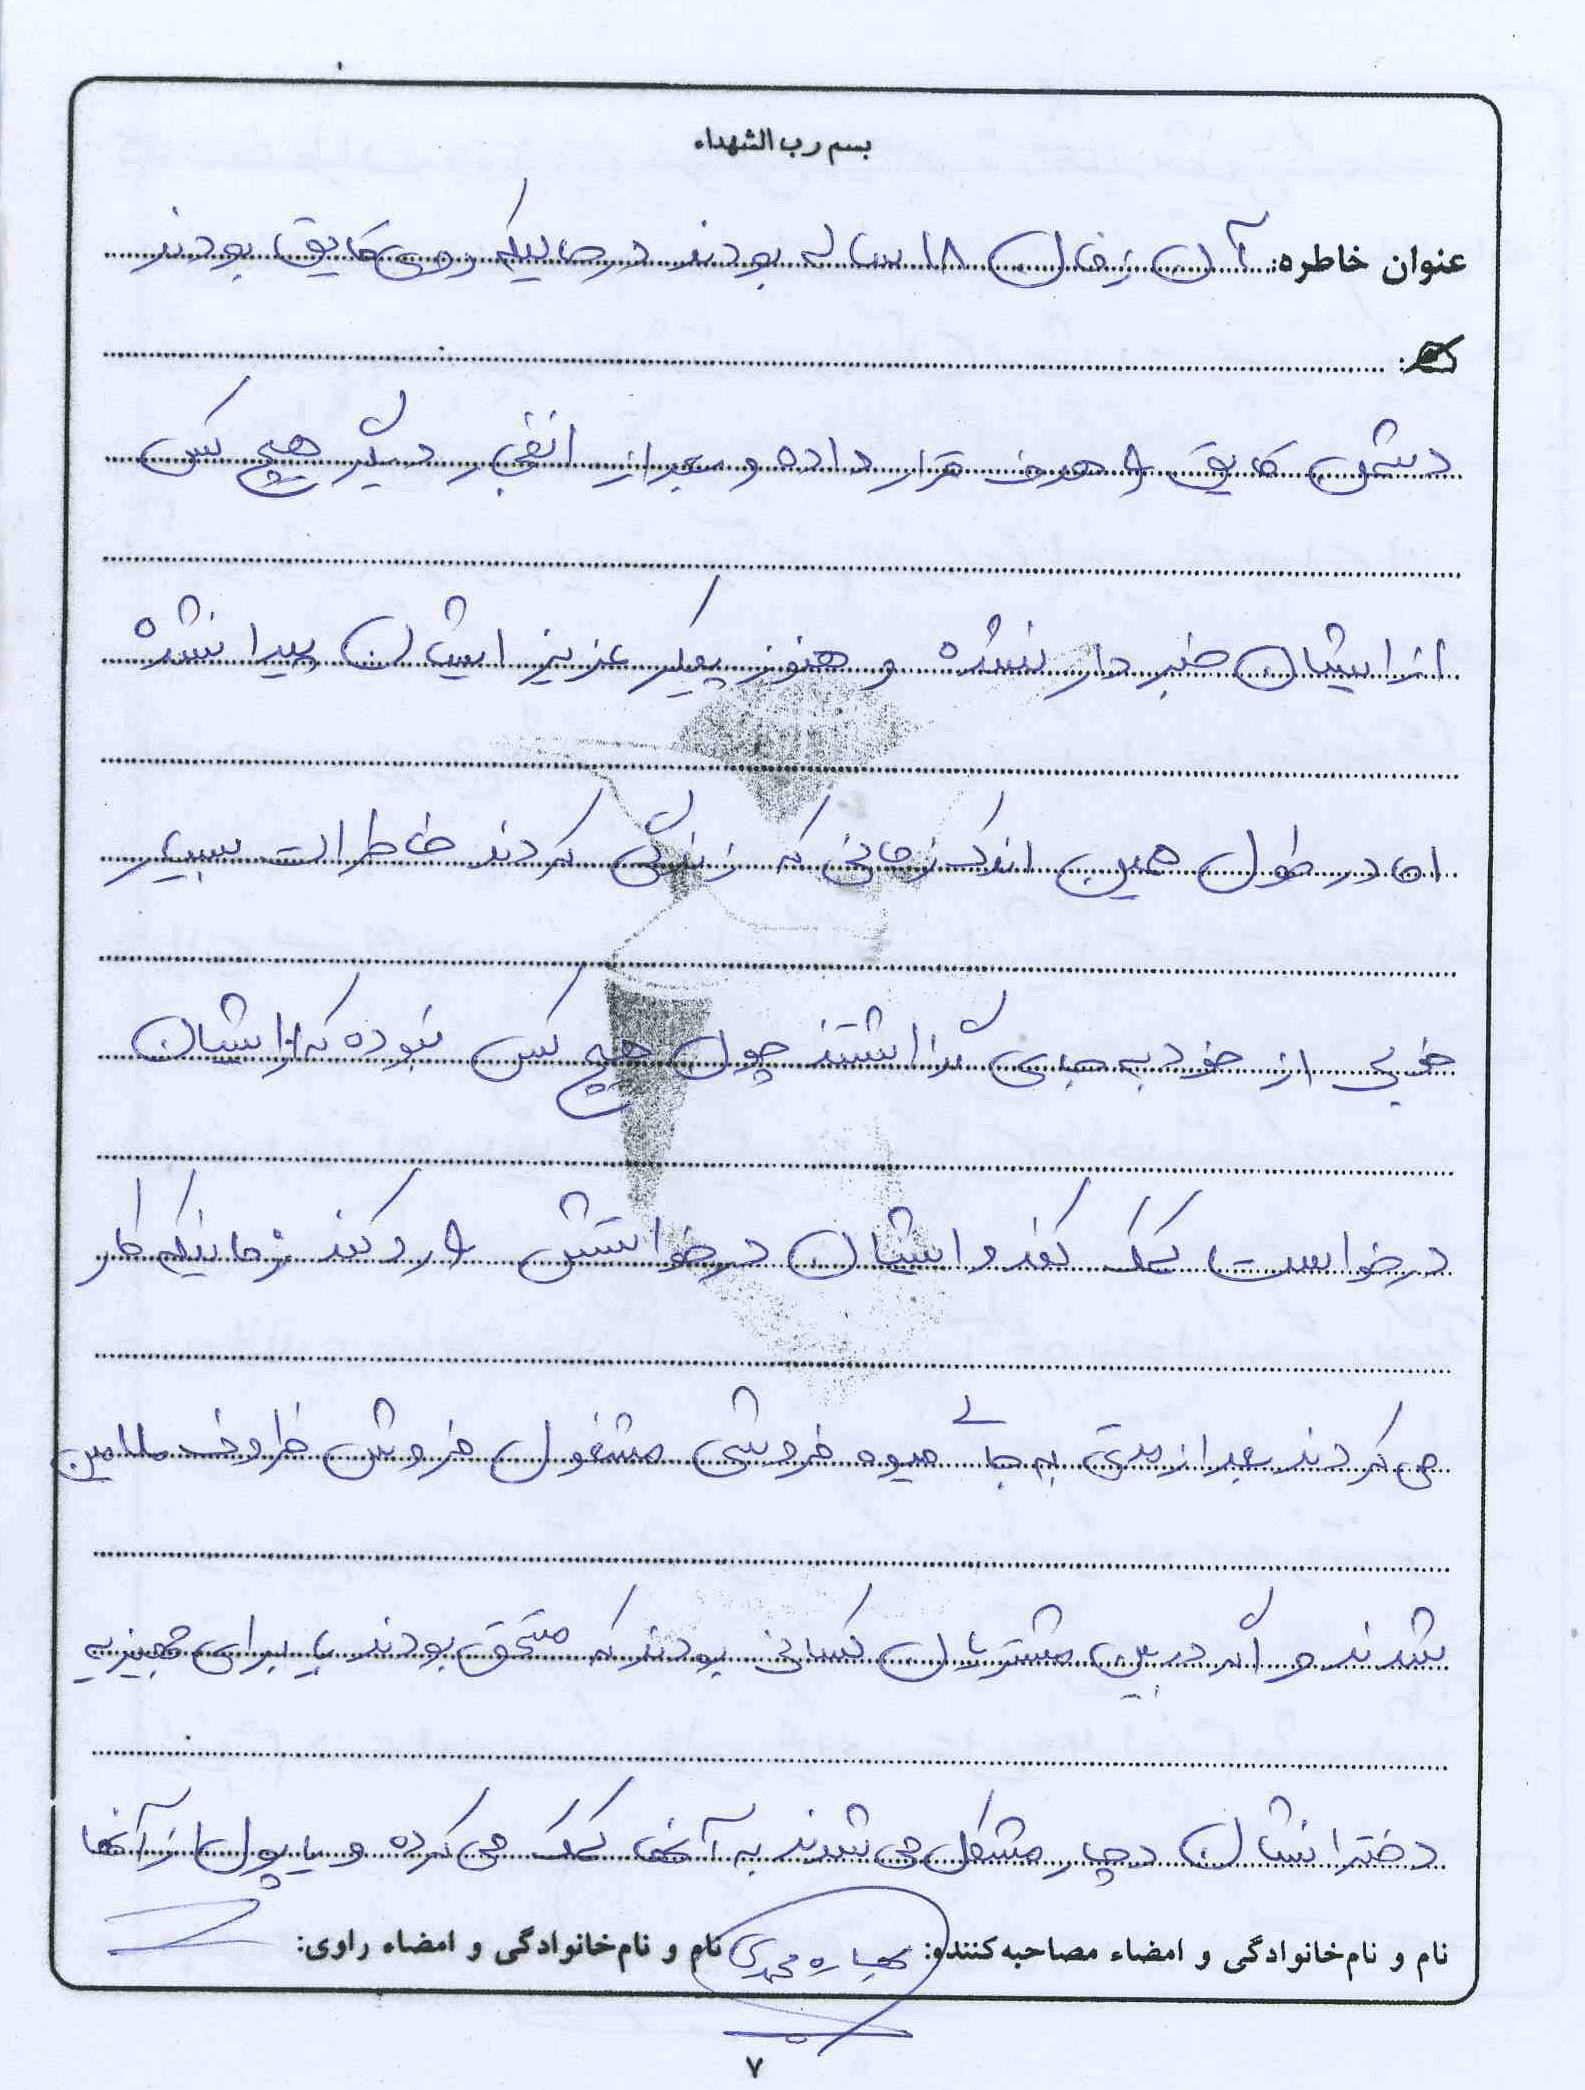 بسم رب الشهداء
عنوان خاطره: آن زمان ۱۸ ساله بودند درحالیکه روی قایق بودند
دشمن قایق را هدف قرار داده و بعد از انفجار دیگر هیچ کس
از ایشان خبر دار نشده و هنوز پیکر عزیز ایشان پیدا نشده
اما در طول همین اندک زمانی که زندگی کردند خاطرات بسیار
خوبی از خود به جای گذاشتند چون هیچ کس نبوده که از ایشان
درخواست کمک کند و ایشان درخواستش را رد کند زمانیکه کار
می کردند بعد از مدتی به جای میوه فروشی مشغول فروش ظروف ملامین
شدند و اگر در بین مشتریان کسانی بودند که مستحق بودند یا برای جهیزیه
دخترانشان دچار مشکل می شدند به آنها کمک می کرده و یا پول از آنها
نام و نام‌خانوادگی و امضاء مصاحبه‌کننده: محمدی نام و نام‌خانوادگی و امضاء راوی:
۷